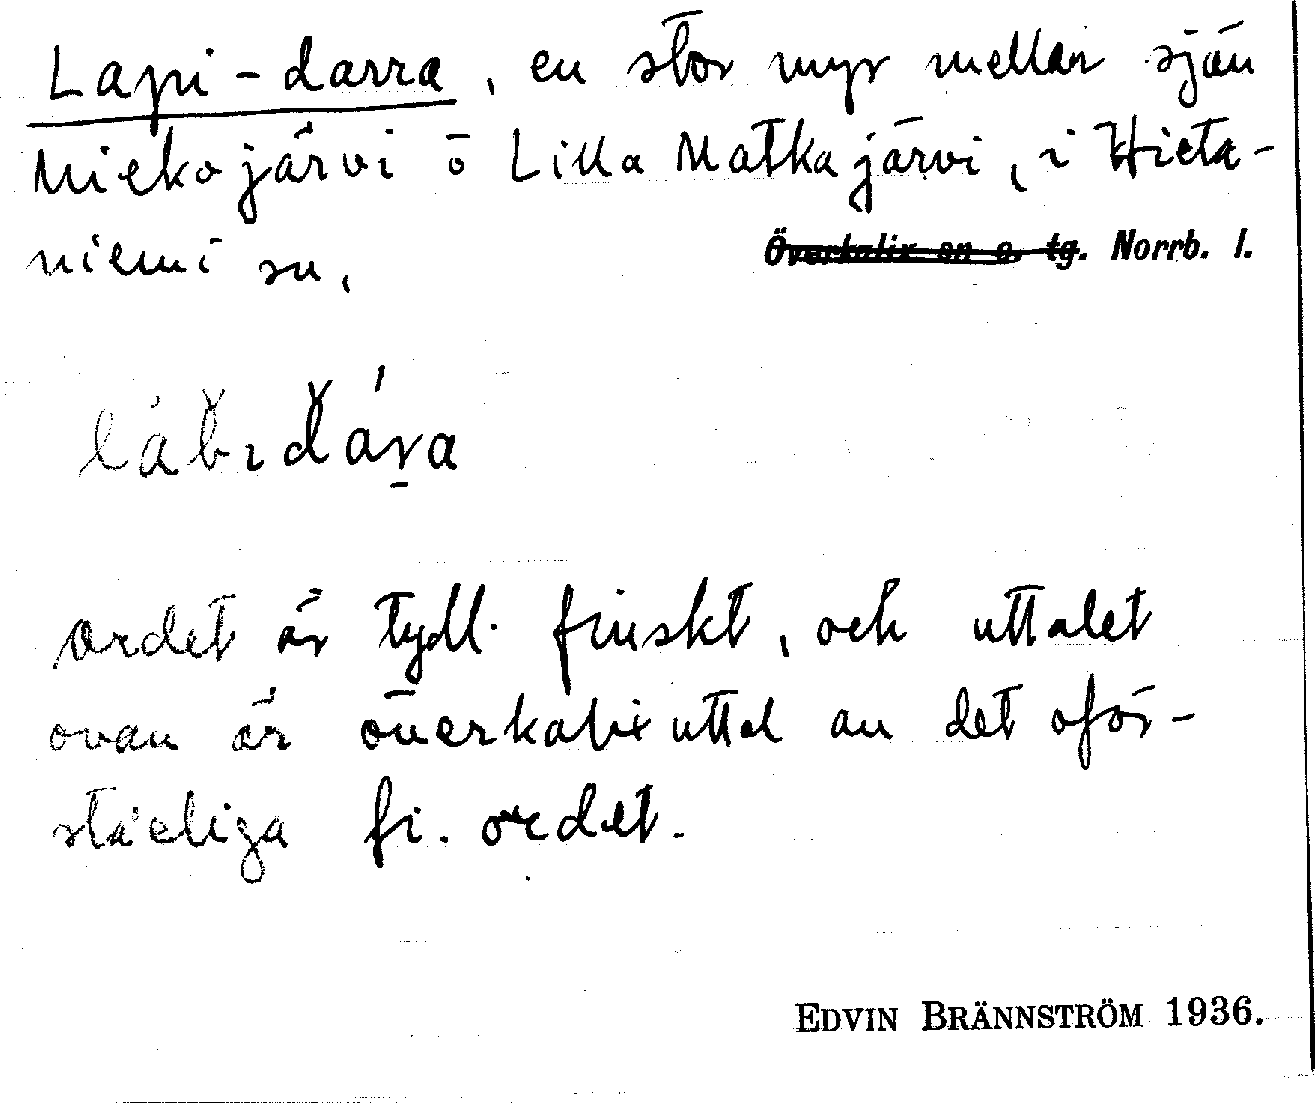 Lapi-darra, en stor myr mellan sjön
Miekojärvi o Lilla Matkajärvi, i Hieta-
niemi sn,
Överkalix sn o. tg. Norrb. l.
ordet är tydl. finskt, och uttalet
ovan är överkalixuttal av det oför-
ståeliga fi. ordet.
EDVIN BRÄNNSTRÖM 1936.